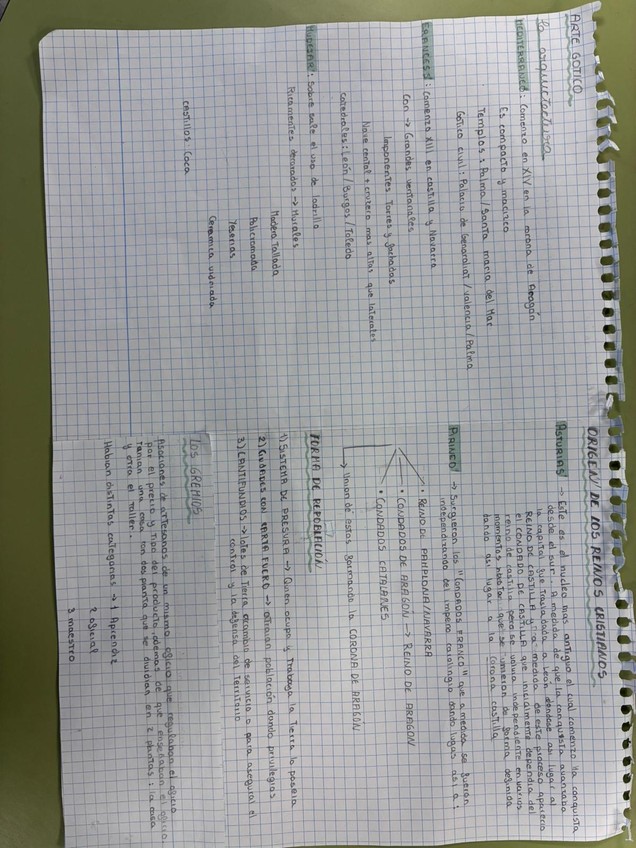 ARTE GOTICO
la arquitectura
MEDITERRANEO: Comenzo en XIV en la corona de Aragón
Es compacto y macizo
Templos: Palma / Santa maria del Mar
Gotico civil: Palacio de Generaliat / valencia / Palma
FRANCES: comenzo XIII en castilla y Navarra
Con → Grandes ventanales
Imponentes Torres y fachadas
Nave cental + crucero mas altas que laterales
catedrales: León / Burgos / Toledo
: sobre sale el uso de ladrillo
Ricamentes decorados → Murales
Madera Tallada
Policromada
Yeserias
Ceramica vidriada
castillos: Coca
ORIGEN DE LOS REINOS CRISTIANOS
ASTURIAS → Este es el nucleo mas antiguo el cual comenzo la conquista
desde el sur. A medida de que la conquista avanzaba
la capital fue trasladada a Leos dandose asi lugar al
REINO DE CASTILLA. A medida de este proceso aparecio
el CONDADO DE CASTILLA que inicialmente dependia del
reino de castilla pero se volvia independiente en varios
momentos hasta que se unieran de forma definida
dando asi lugar a la corona castilla
PIRINEO → Surgieron los "CONDADOS FRANCO" que a medida se fueran
independizando del imperio carolingio dando lugar asi a:
• REINO DE PAMPLONA/NAVARRA
• CONDADOS DE ARAGON → REINO DE ARAGON
• CONDADOS CATALANES
→ Union de estos formando la CORONA DE ARAGON
FORMA DE REPOBLACIÓN
1) SISTEMA DE PRESURA → Quien ocupa y Trabaja la Tierra la poseia
2) CIUDADES CON CARTA FUERO → atraian población dando privilegios
3) → lotes de Tierra acambio de servicio o para asegurar el
control y la defensa del Territorio
LOS GREMIOS
Asociones de artesanos de un mismo oficio que regulaban el oficio
por el precio y Tipo del producto, ademas de que enseñaban el oficio
Tenian una casa con dos planta que se dividian en 2 plantas: la casa
y otra el Taller.
Habian distintas categorias → 1 Aprendiz
2 oficial
3 maestro